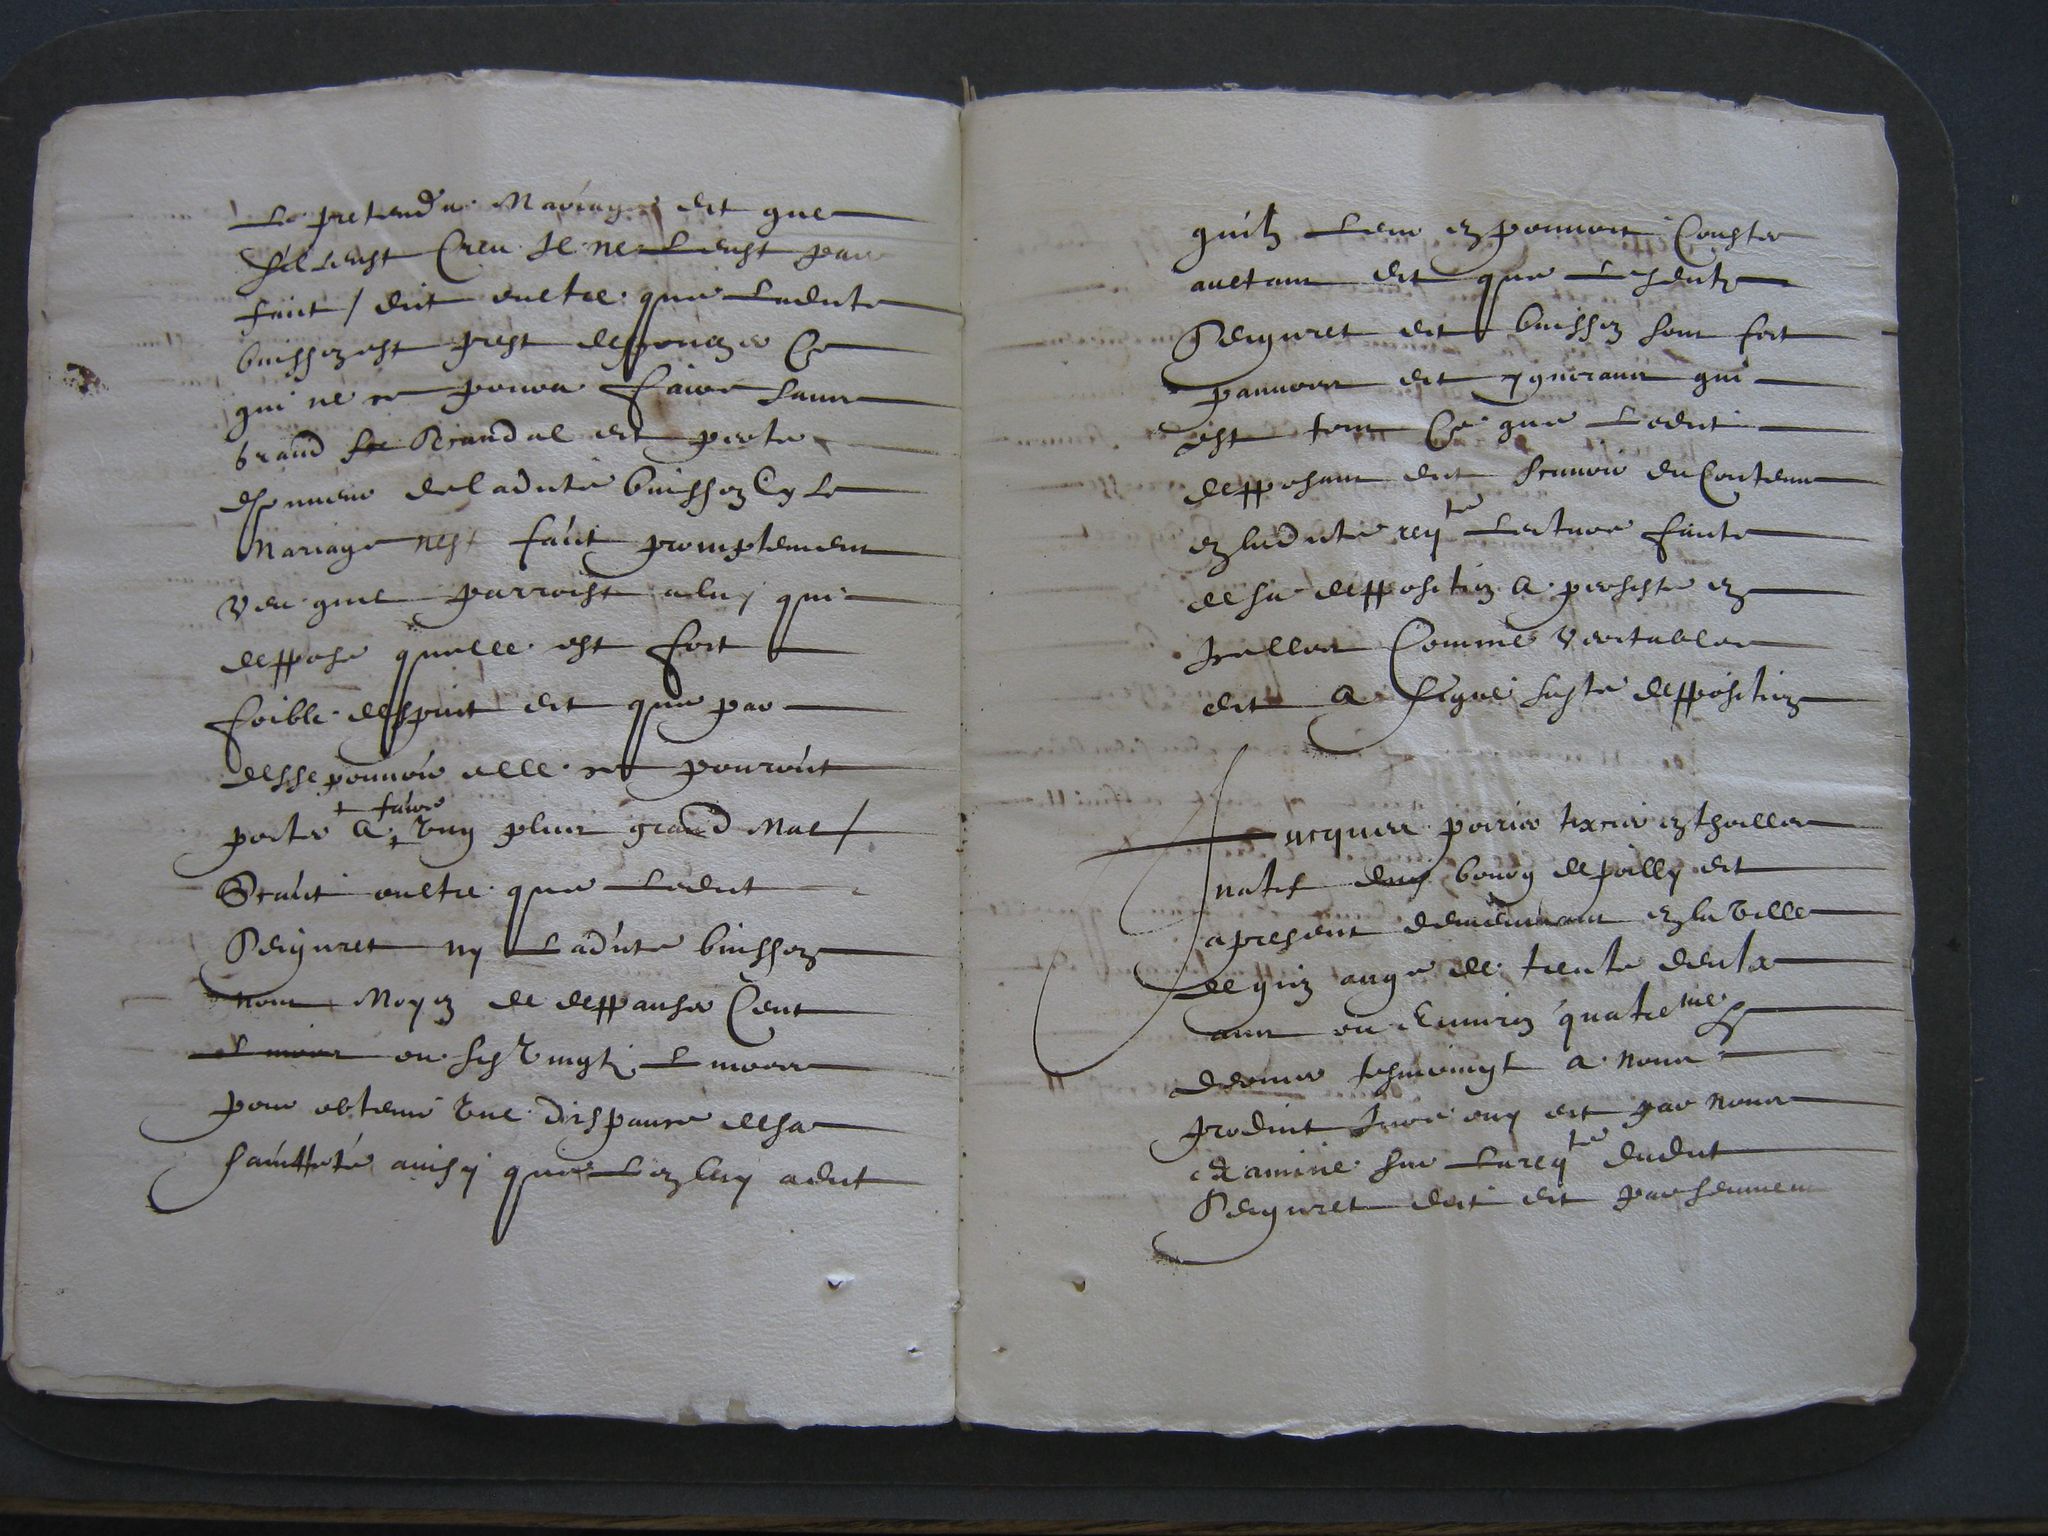 Le pretendu Mariage et que
s'il leust Creu Il ne Leust pas
faict / dit oultre que Ladite
buisson est prest despouzer Ce
qui ne se pourra faire sans
grand Scandal et perte
dhonneur deladite buisson Sy Le
Mariage nest faict promptement
veu quil parroist a luy qui
deppose quelle est fort
foible desprit et que par
dessespouuoir elle se pouroit
porter a faire Vng plus grand Mal /
Scait oultre que Ledit
Seiguret ny Ladite buisson
nont Moyen de deppanser Cent
ou six Vingtz Liures
pour obtenir Vne dispance desa
Sainttete ainsy que Lon luy a dit
quil Leur en pouuoit Couster
aultant dit que Lesditz
Seiguret et buisson sont fort
pauures et ygnorans qui
est tout Ce que Ledit
depposant dit scauoir du Contenu
en ladite reqte Lecture faicte
de sa depposition A persiste en
Icelles Comme veritables
et A signe sus sa depposition
Jacques poirier texier en thoilles
natif du bourg de poilly et
a present demeurant en la Ville
de gien aagé de trente deux
ans ou Enuiron quatreme
dernier tesmoingt a nous
produit Juré ouy et par nous
Examine sur Lareqte dudit
Seiguret dit et par serment